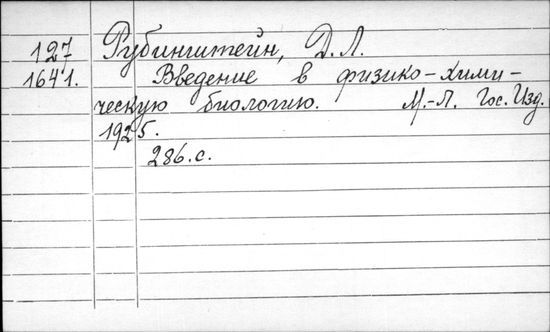 127 Рубинштейн, Д.Л.
1641. Введение в физико-хими-
ческую биологию. М.-Л. Гос. Изд.
1925.
286.с.